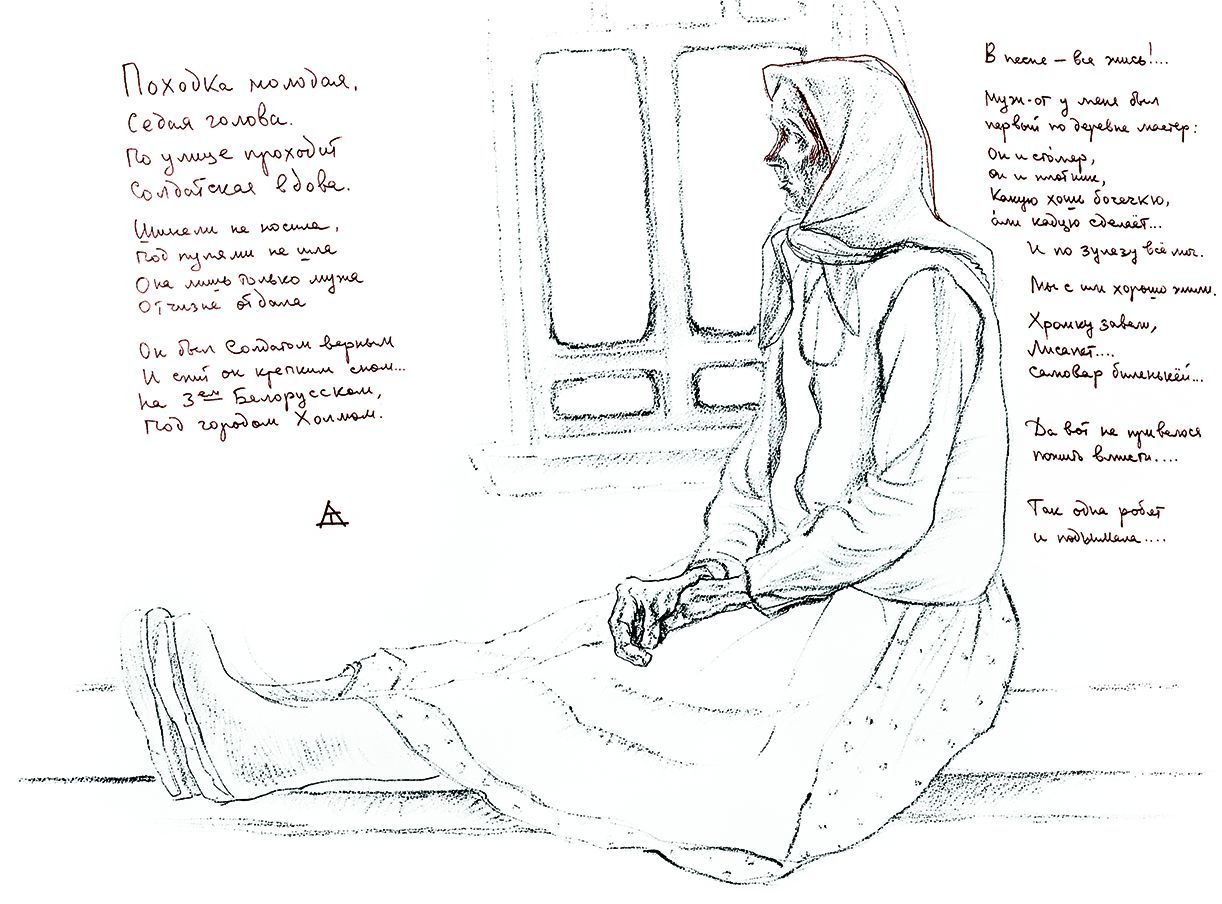 Походка молодая,
Седая голова.
По улице проходит
Солдатская вдова.
Шинели не носила,
Под пулями не шла
Она лишь только мужа
Отчизне отдала
Он был Солдатом верным
И спит он крепким сном...
На 3ем Белорусском,
Под городом Холмом.
В песне – вся жись!...
Муж-от у меня был
первый по деревне мастер:
Он и сто́ляр,
он и плотник,
Какую хошь бочечкю,
а́ли кадцю сделаёт...
И по зулезу всё мог.
Мы с им хорошо жили.
Хромку завели,
Лисапет....
Самовар биленькёй...
Да вот не привелося
пожить вмисти....
Так одна робят
и подымала....